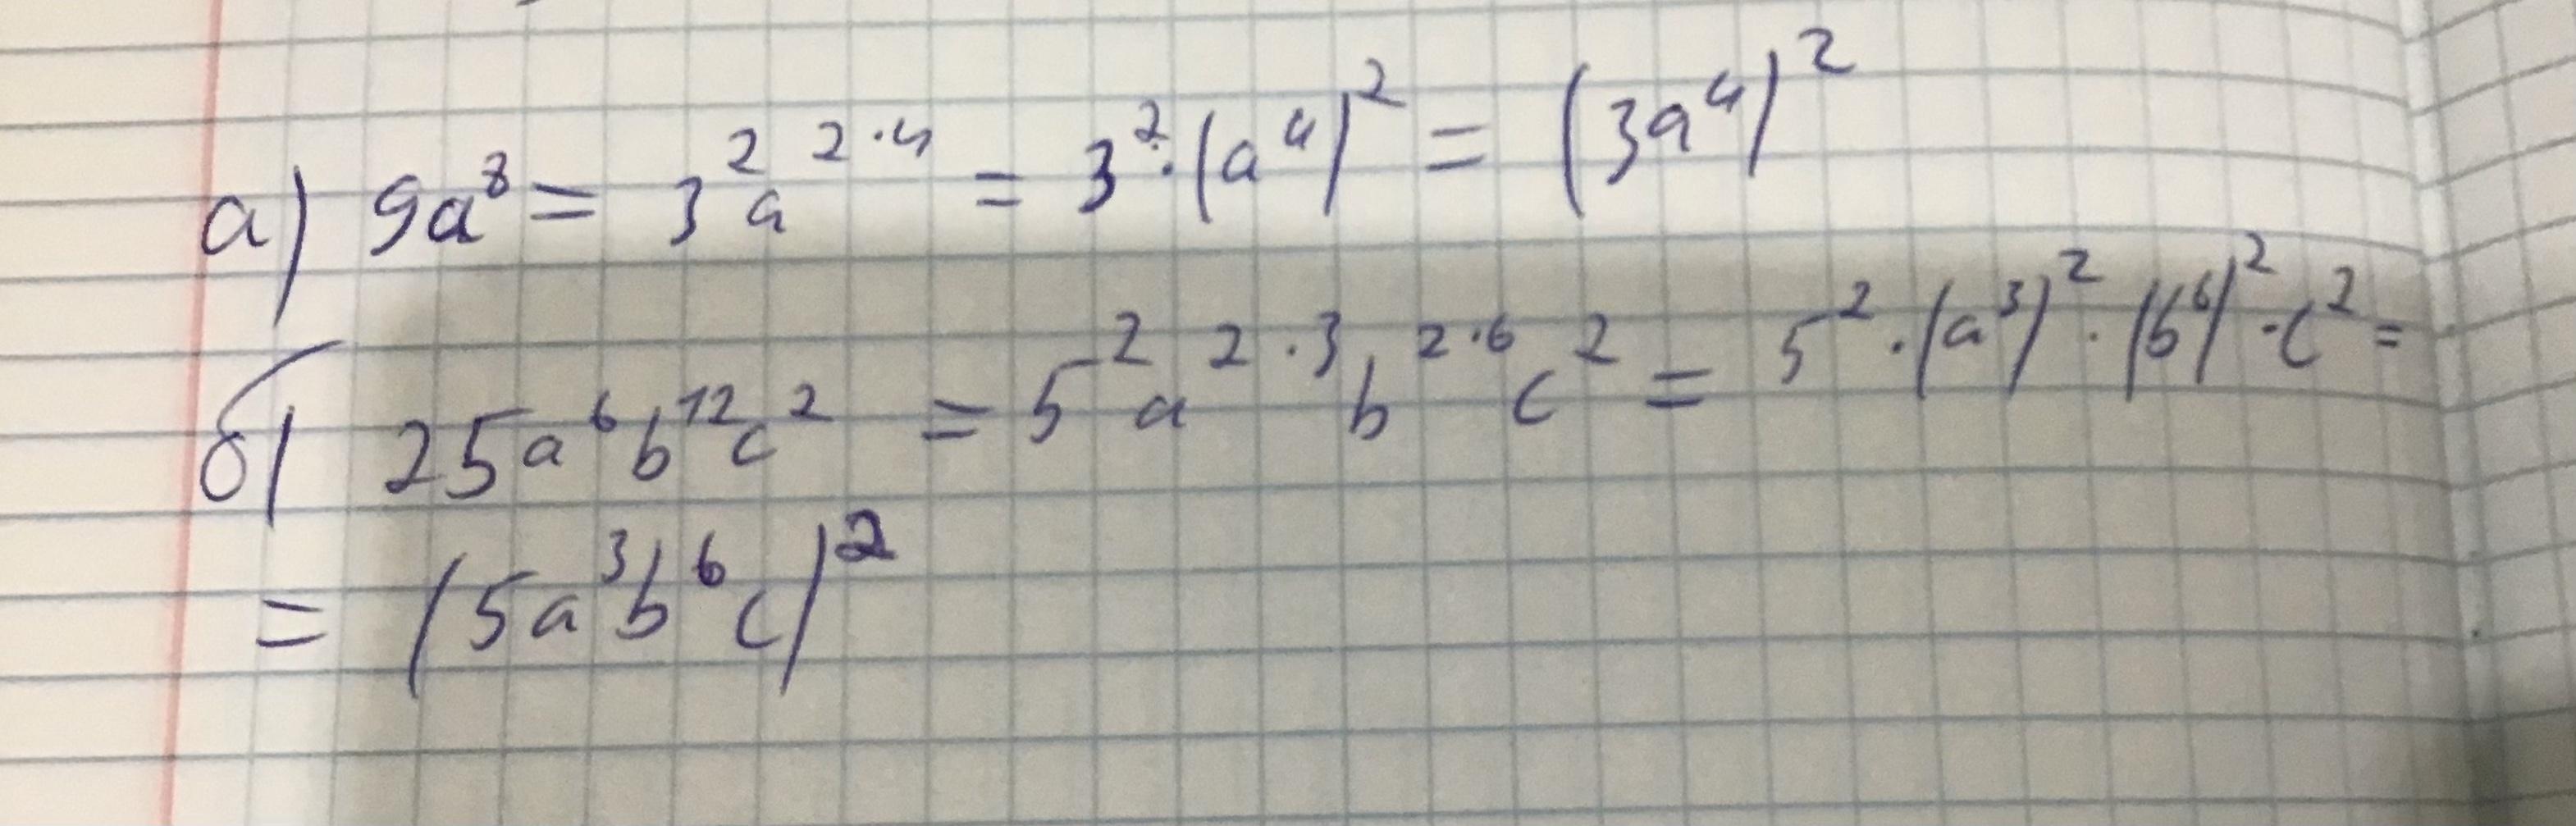 а) 9a⁸ = 3²a²·⁴ = 3²·(a⁴)² = (3a⁴)²
б) 25a⁶b¹²c² = 5²a²·³b²·⁶c² = 5²·(a³)²·(b⁶)²·c² =
= (5a³b⁶c)²